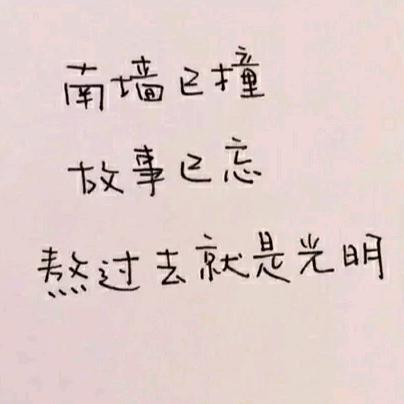 南墙已撞
故事已忘
熬过去就是光明